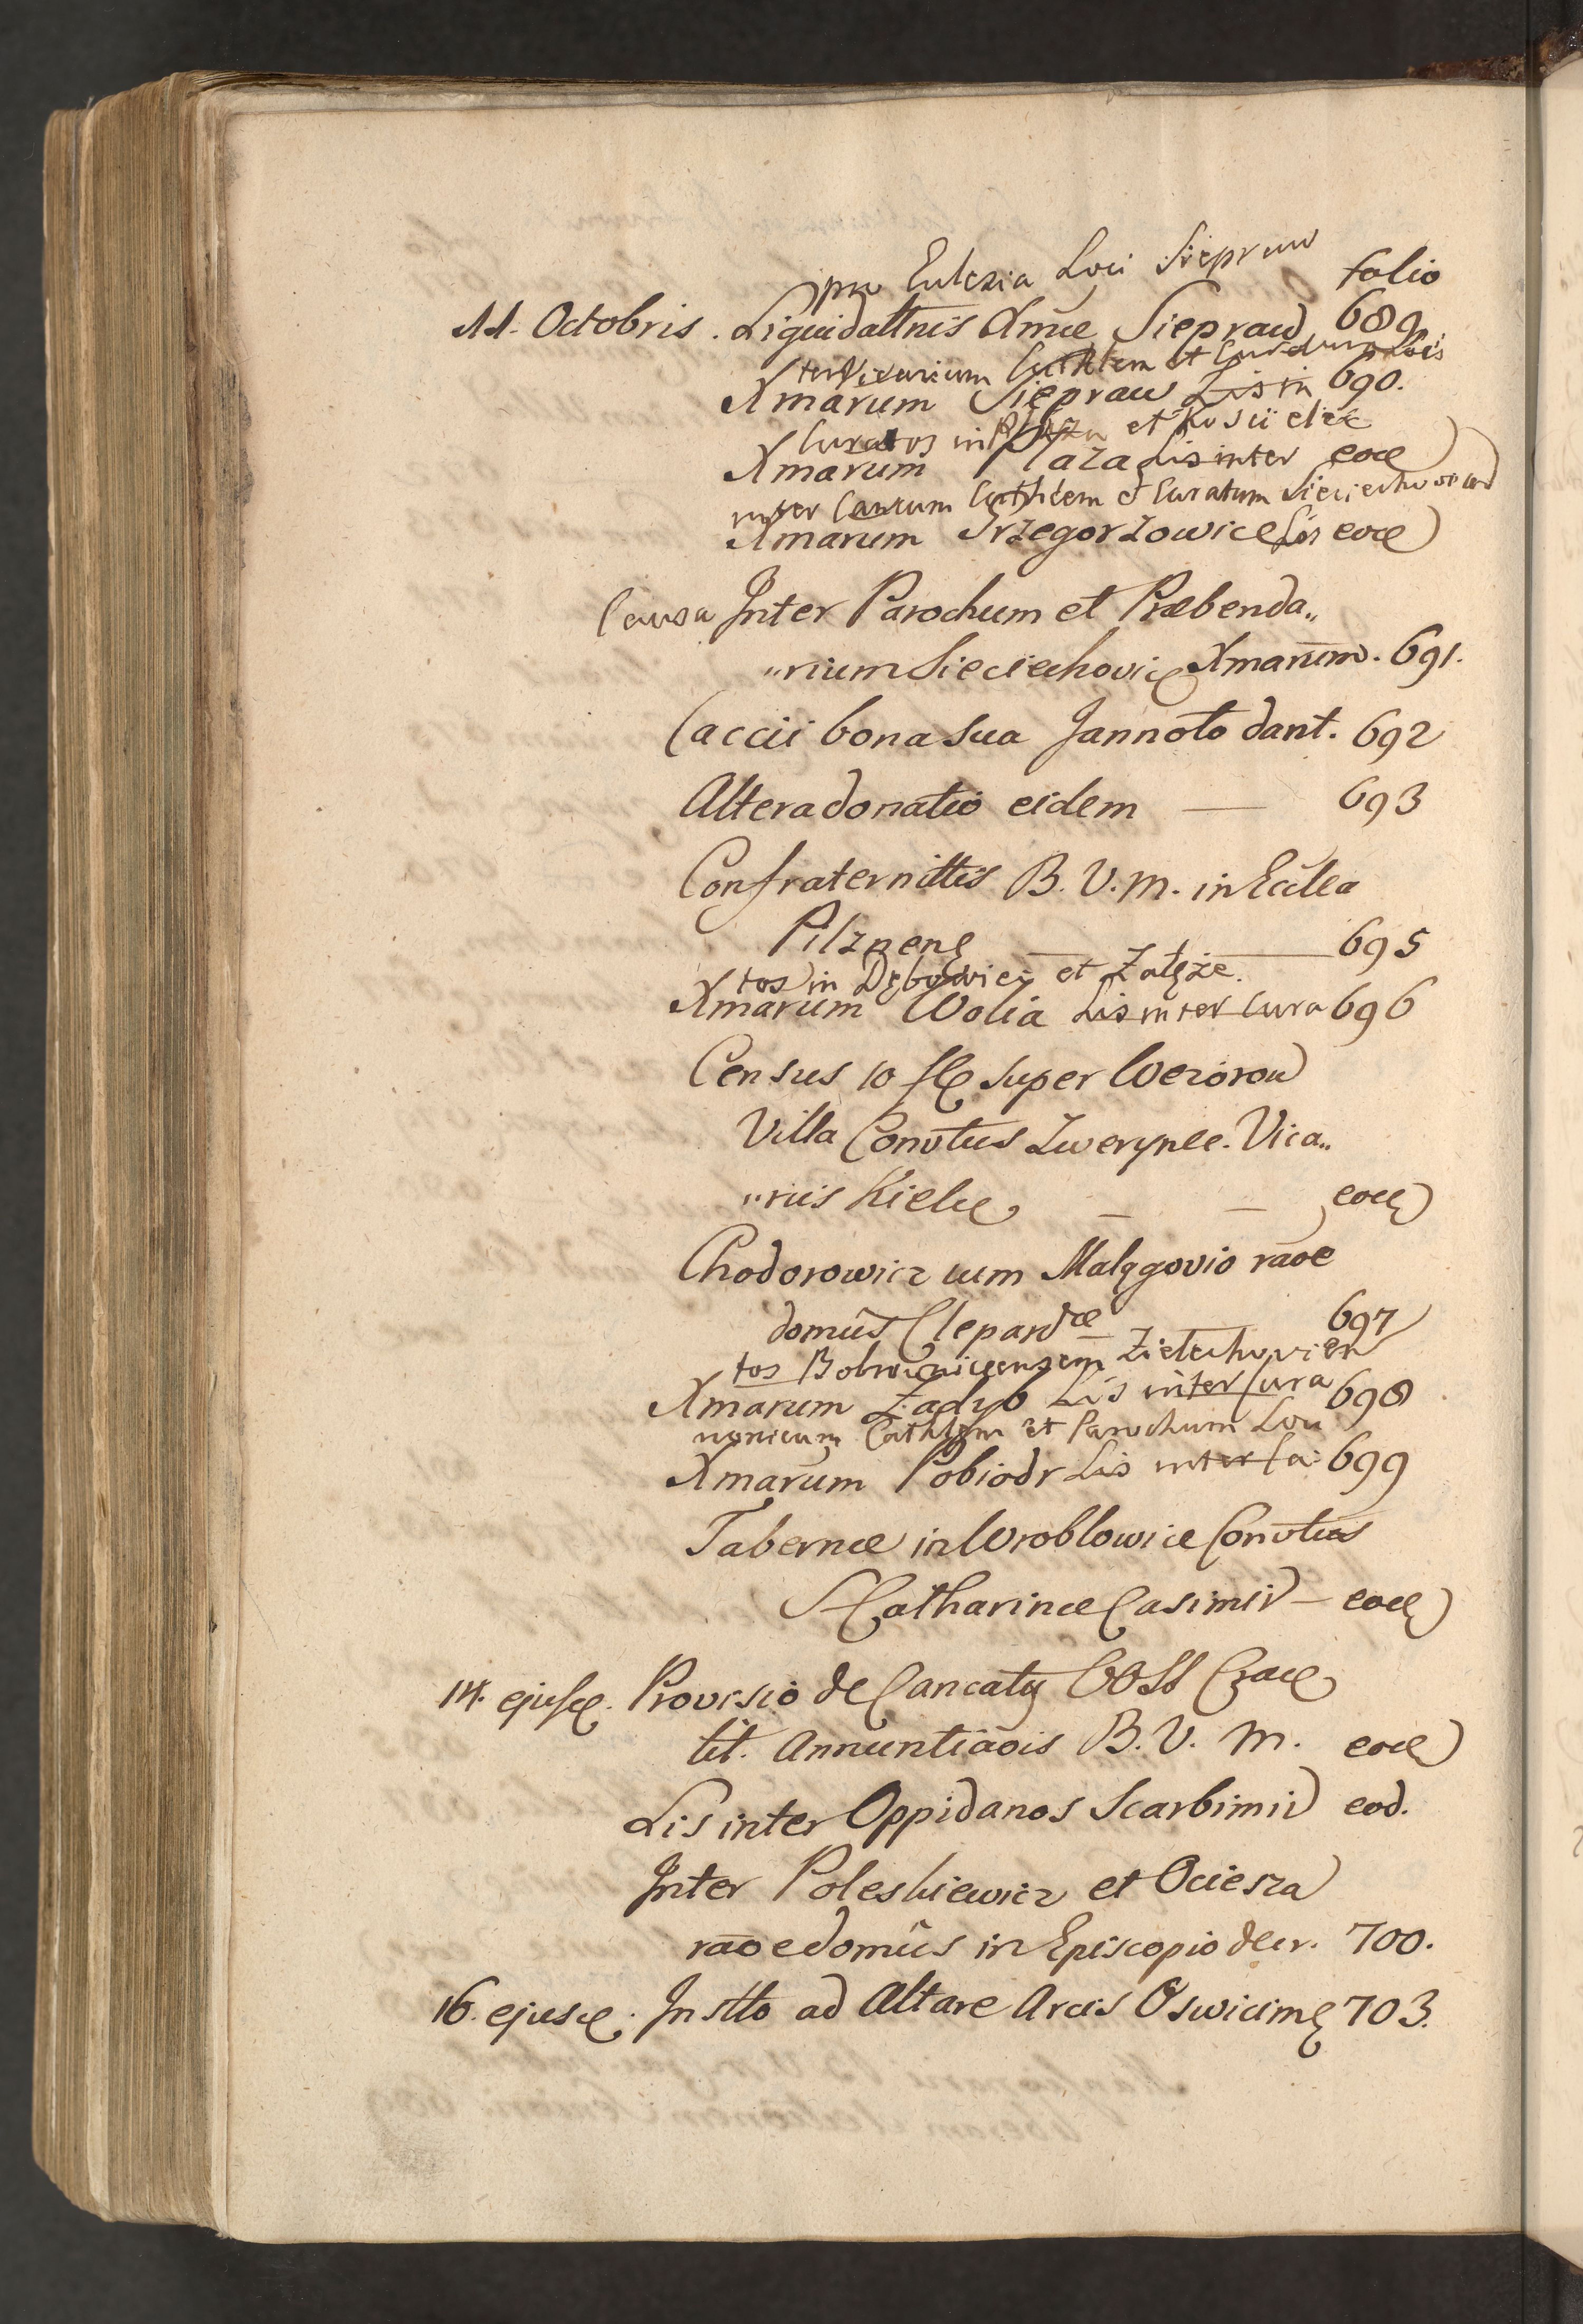 pro Eclesia Loci Siepraw
folio
11. Octobris. Liquidattnis Xmæ Siepraw 689
ter Vicarium Cathlem et Curatum Loci
Xmarum Siepraw Lis in 690.
Curatos in Płaza et Kosciielec
Xmarum Płaza Lis inter eod
inter Cancum Cathlem et Curatum Sieciechovien
Xmarum Grzegorzowice Lis eod
Causa Inter Parochum et Præbenda„
„rium Sieciechovic Xmarum. 691.
Caccii bona sua Jannoto dant. 692
Altera donatio eidem — 693
Confraternittis B. V. M. in Ecclea
Pilznen — 695
tos in Dębowiec et Załęże.
Xmarum Wolia Lis inter Cura 696
Census 10 fl super Wezorow
Villa Convtus Zwerynec. Vica„
„riis Kielc — — eod
Chodorowicz cum Malęgovio raoe
domus Clepardiæ — 697
tos Bobrownicensem Zielechovien
Xmarum Żadyb Lis inter Cura 698
nonicum Cathlem et Parochum Loci
Xmarum Pobiodr Lis inter Ca: 699
Tabernæ in Wroblowice Convtus
S Catharinæ Casimir — eod
14. ejusd. Provisio de Cancatu OOSS Crac
tit. Annuntiaois B. V. M. eod
Lis inter Oppidanos Scarbimir eod.
Inter Poleskiewicz et Ociesza
raoe domus in Episcopio decr. 700.
16. ejusd. Instto ad Altare Arcis Oswicim 703.